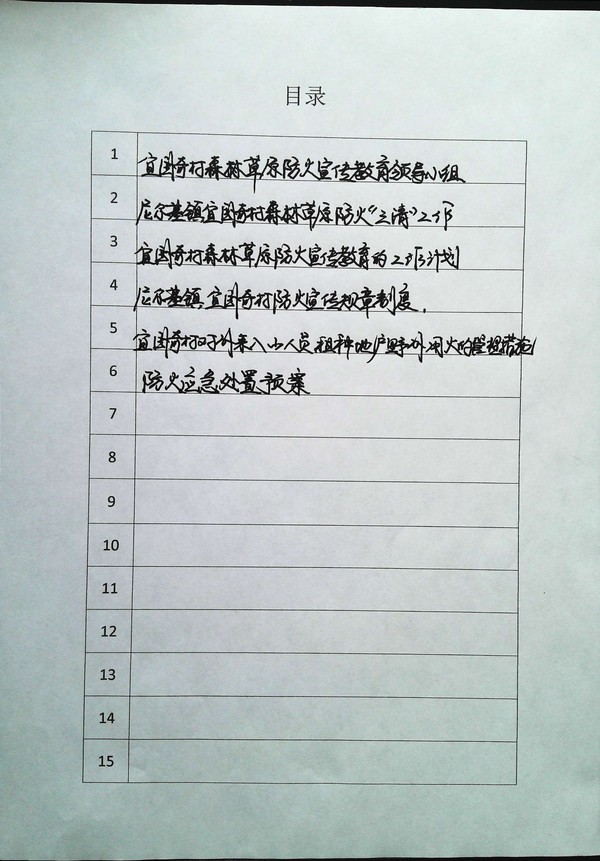 目录
1 宜围奇村森林草原防火宣传教育领导小组
2 尼尔基镇宜围奇村森林草原防火“三清”工作
3 宜围奇村森林草原防火宣传教育的工作计划
4 尼尔基镇宜围奇村防火宣传规章制度.
5 宜围奇村对外来入山人员租种地户野外用火的管理措施
6 防火应急处置预案
7
8
9
10
11
12
13
14
15